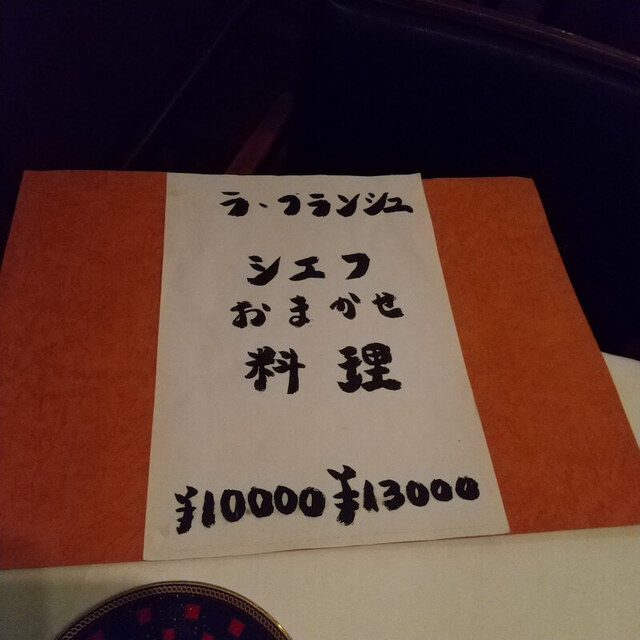 ラ・ブランシュ
シェフ
おまかせ
料理
¥10000 ¥13000